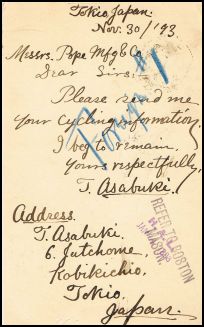 Tokio Japan.
Nov. 30/'93
Messrs. Pope Mfg & Co.
Dear Sirs:
Please send me
your cycling information
I beg to remain,
Yours respectfully,
T. Asabuki.
Address.
T. Asabuki.
6. Jutchome,
Kobikichio,
Tokio.
Japan.
REFER TO BOSTON